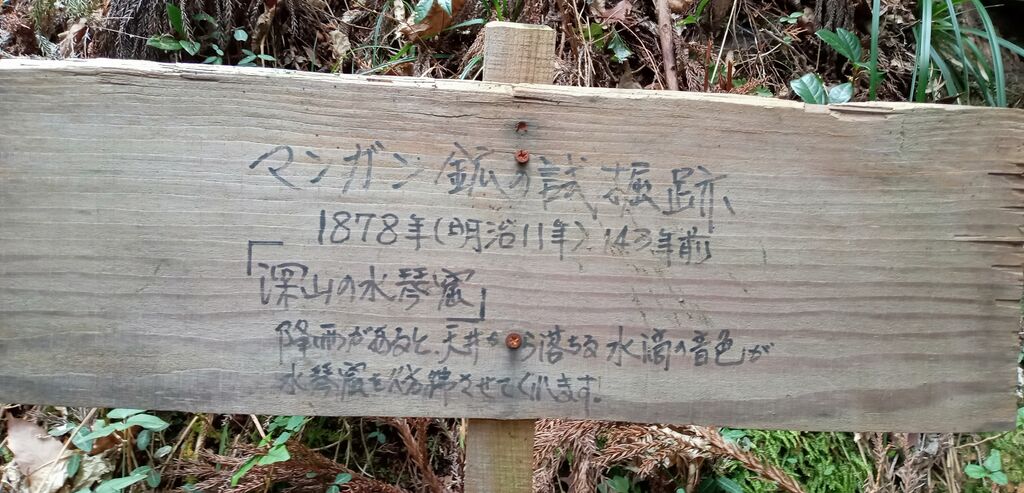 マンガン鉱の試掘跡
1878年(明治11年) 143年前
「深山の水琴窟」
降雨があると、天井から落ちる水滴の音色が
水琴窟を彷彿させてくれます!